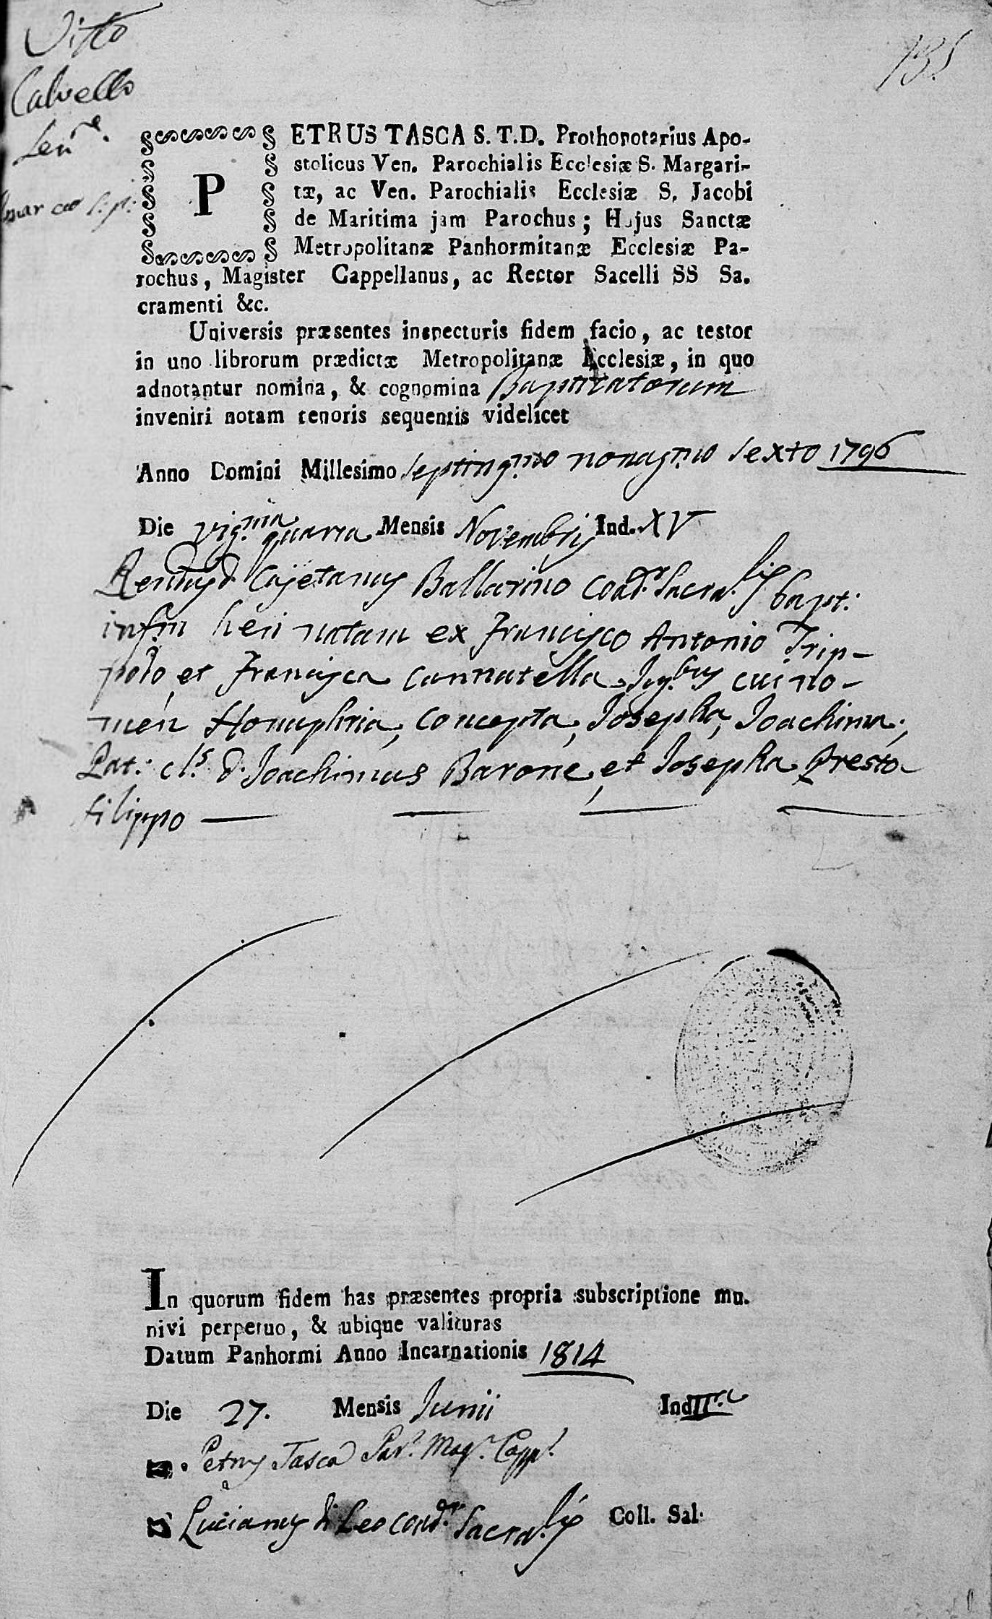 Vitto
Calvello
Len.re
135
PETRUS TASCA S. T. D. Prothonotarius Apo-
stolicus Ven. Parochialis Ecclesiæ S. Margari-
tæ, ac Ven. Parochialis Ecclesiæ S. Jacobi
de Maritima jam Parochus; Hujus Sanctæ
Metropolitanæ Panhormitanæ Ecclesiæ Pa-
rochus, Magister Cappellanus, ac Rector Sacelli SS Sa.
cramenti &c.
Universis præsentes inspecturis fidem facio, ac testor
in uno librorum prædictæ Metropolitanæ Ecclesiæ, in quo
adnotantur nomina, & cognomina Baptizatorum
inveniri notam tenoris sequentis videlicet
Anno Domini Millesimo septing.mo nonag.mo sexto 1796
Die vig.ma quarta Mensis Novembris Ind. XV
Rendus D. Cajetanus Ballarino Coad.r Sacra.lis bapt:
inf.m heri natam ex Francisco Antonio Trip-
polo, et Francisca Cannatella Jug.bus cui no-
men Honuphria, Concepta, Josepha, Joachima;
Pat: cl.s D. Joachimus Barone, et Josepha Presto-
filippo
In quorum fidem has præsentes propria subscriptione mu.
nivi perpetuo, & ubique valituras
Datum Panhormi Anno Incarnationis 1814
Die 27. Mensis Junii Ind II.a
Petrus Tasca Par.s Mag.r Capp.s
Lucianus di Leo Coad.r Sacra.lis Coll. Sal.